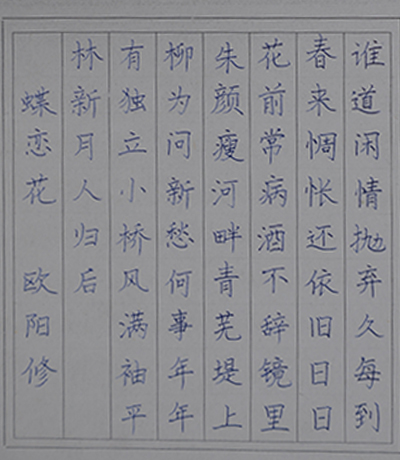 谁道闲情抛弃久每到
春来惆怅还依旧日日
花前常病酒不辞镜里
朱颜瘦河畔青芜堤上
柳为问新愁何事年年
有独立小桥风满袖平
林新月人归后
蝶恋花 欧阳修